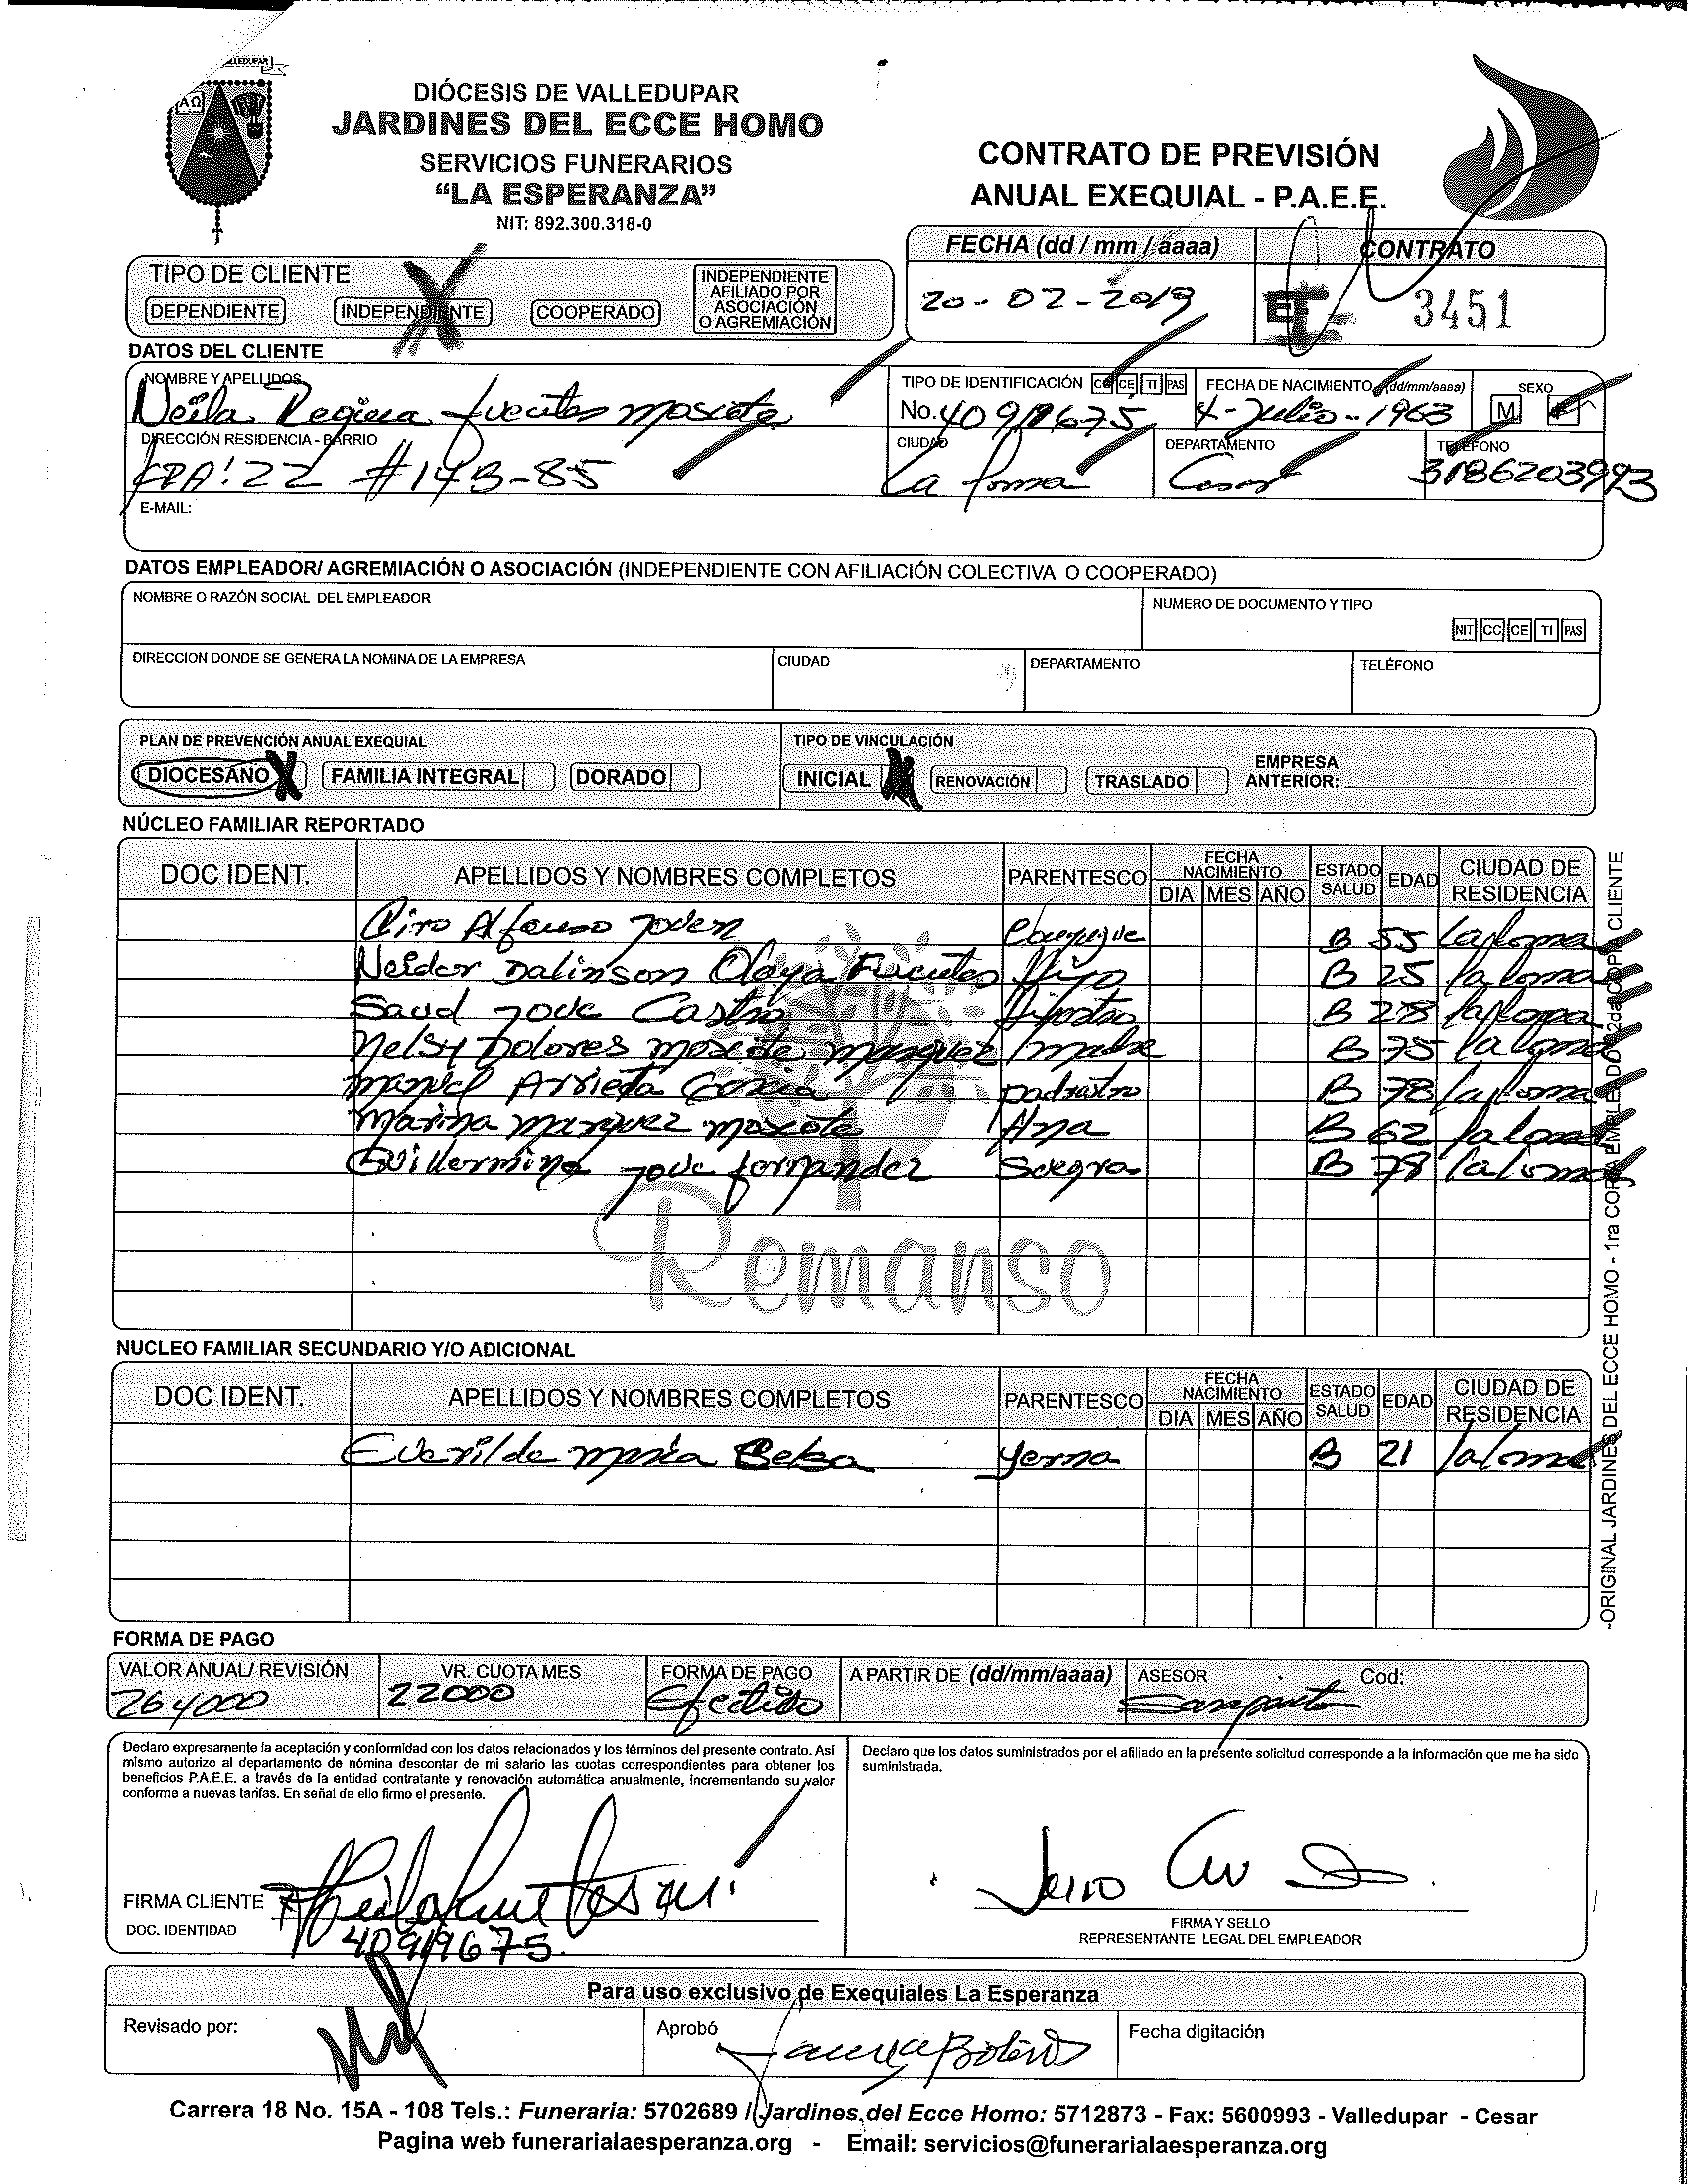 VALLEDUPAR
ΑΩ
DIÓCESIS DE VALLEDUPAR
JARDINES DEL ECCE HOMO
SERVICIOS FUNERARIOS
“LA ESPERANZA”
NIT: 892.300.318-0
CONTRATO DE PREVISIÓN
ANUAL EXEQUIAL - P.A.E.E.
FECHA (dd / mm / aaaa) CONTRATO
20-02-2019 3451
TIPO DE CLIENTE
DEPENDIENTE INDEPENDIENTE COOPERADO INDEPENDIENTE AFILIADO POR ASOCIACIÓN O AGREMIACIÓN
DATOS DEL CLIENTE
NOMBRE Y APELLIDOS TIPO DE IDENTIFICACIÓN CC CE TI PAS FECHA DE NACIMIENTO (dd/mm/aaaa) SEXO
Neila Regina fuentes moscote No. 40919675 4-Julio-1963 M
DIRECCIÓN RESIDENCIA - BARRIO CIUDAD DEPARTAMENTO TELÉFONO
KRA: 22 #14B-85 La Loma Cesar 3186203993
E-MAIL:
DATOS EMPLEADOR/ AGREMIACIÓN O ASOCIACIÓN (INDEPENDIENTE CON AFILIACIÓN COLECTIVA O COOPERADO)
NOMBRE O RAZÓN SOCIAL DEL EMPLEADOR NUMERO DE DOCUMENTO Y TIPO
NIT CC CE TI PAS
DIRECCION DONDE SE GENERA LA NOMINA DE LA EMPRESA CIUDAD DEPARTAMENTO TELÉFONO
PLAN DE PREVENCIÓN ANUAL EXEQUIAL TIPO DE VINCULACIÓN
DIOCESANO X FAMILIA INTEGRAL DORADO INICIAL X RENOVACIÓN TRASLADO EMPRESA ANTERIOR:
NÚCLEO FAMILIAR REPORTADO
DOC IDENT. APELLIDOS Y NOMBRES COMPLETOS PARENTESCO FECHA NACIMIENTO DIA MES AÑO ESTADO SALUD EDAD CIUDAD DE RESIDENCIA
Ciro Alfonso Joven Conyugue B 55 La loma
Neider Dalinson Olaya Fuentes Hijo B 25 la loma
Saud Jove Castro Hijastro B 28 la loma
Nelsy Dolores moscote marquez madre B 75 la loma
manuel Arrieta Garcia padrastro B 78 la loma
Marina marquez moscote B 62 la loma
Guillermina Jove fernandez Suegra B 78 la loma
Remanso
NUCLEO FAMILIAR SECUNDARIO Y/O ADICIONAL
DOC IDENT. APELLIDOS Y NOMBRES COMPLETOS PARENTESCO FECHA NACIMIENTO DIA MES AÑO ESTADO SALUD EDAD CIUDAD DE RESIDENCIA
Everilde maria yerna B 21 la loma
-ORIGINAL JARDINES DEL ECCE HOMO - 1ra COPIA EMPLEADOR 2da COPIA CLIENTE
FORMA DE PAGO
VALOR ANUAL/ REVISIÓN VR. CUOTA MES FORMA DE PAGO A PARTIR DE (dd/mm/aaaa) ASESOR Cod:
264000 22000 Efectivo
Declaro expresamente la aceptación y conformidad con los datos relacionados y los términos del presente contrato. Así
mismo autorizo al departamento de nómina descontar de mi salario las cuotas correspondientes para obtener los
beneficios P.A.E.E. a través de la entidad contratante y renovación automática anualmente, incrementando su valor
conforme a nuevas tarifas. En señal de ello firmo el presente.
Declaro que los datos suministrados por el afiliado en la presente solicitud corresponde a la información que me ha sido
suministrada.
FIRMA CLIENTE
DOC. IDENTIDAD 40919675.
FIRMA Y SELLO
REPRESENTANTE LEGAL DEL EMPLEADOR
Para uso exclusivo de Exequiales La Esperanza
Revisado por: Aprobó Fecha digitación
Carrera 18 No. 15A - 108 Tels.: Funeraria: 5702689 / Jardines del Ecce Homo: 5712873 - Fax: 5600993 - Valledupar - Cesar
Pagina web funerarialaesperanza.org - Email: servicios@funerarialaesperanza.org